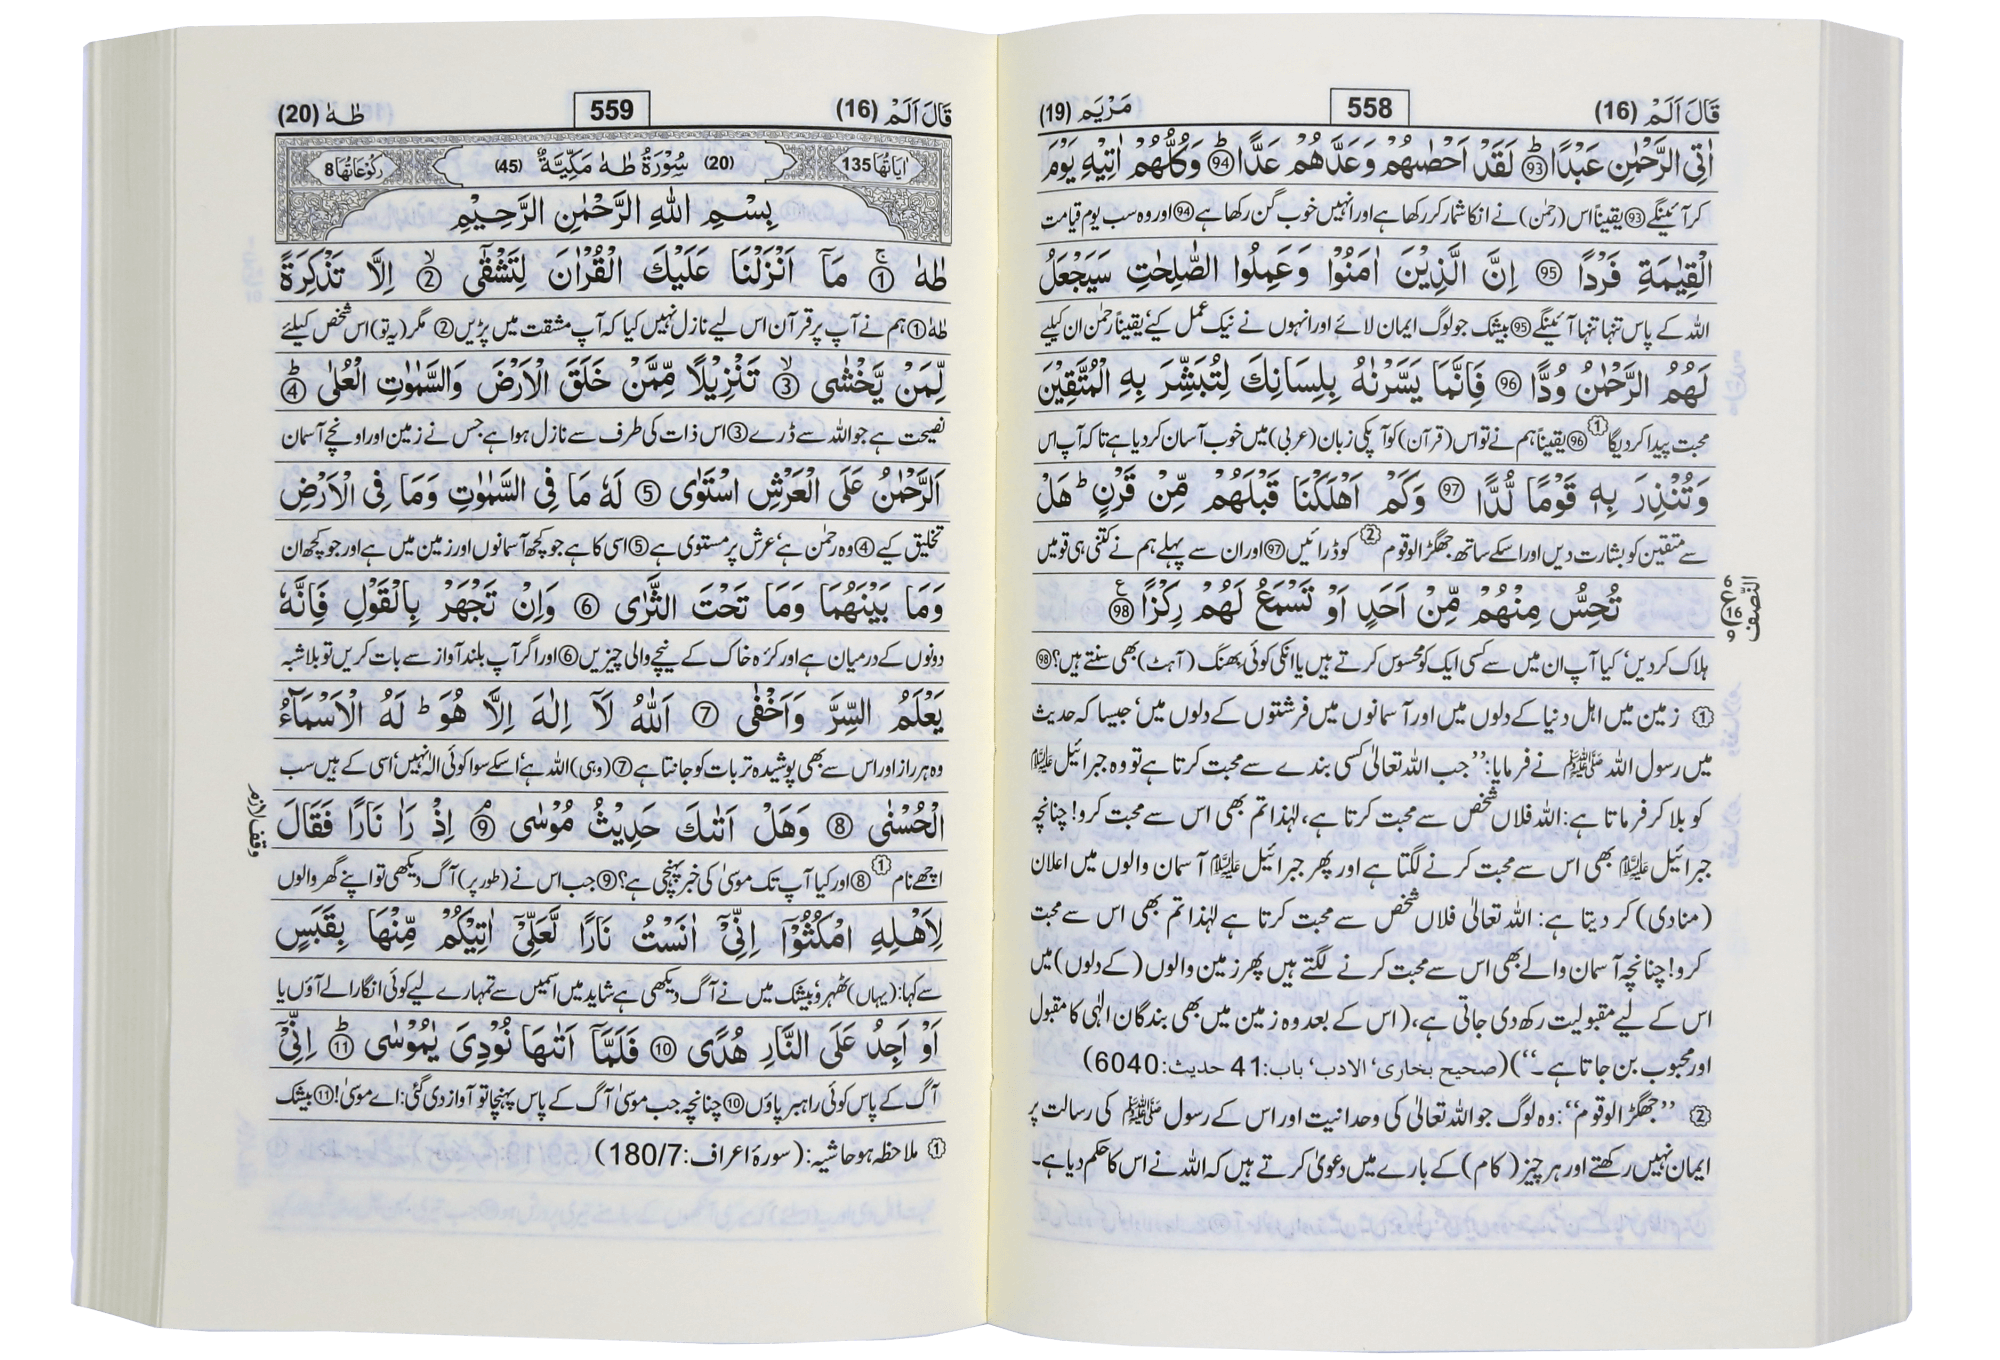 قَالَ اَلَمْ (16)
558
مَرْيَم (19)
اٰتِى الرَّحْمٰنِ عَبْدًا ۝93ۭ لَقَدْ اَحْصٰىهُمْ وَعَدَّهُمْ عَدًّا ۝94ۭ وَكُلُّهُمْ اٰتِيْهِ يَوْمَ
کر آئینگے 93 یقیناً اس (رحمٰن) نے انکا شمار کر رکھا ہے اور انہیں خوب گن رکھا ہے 94 اور وہ سب یوم قیامت
الْقِيٰمَةِ فَرْدًا 95 اِنَّ الَّذِيْنَ اٰمَنُوْا وَعَمِلُوا الصّٰلِحٰتِ سَيَجْعَلُ
اللہ کے پاس تنہا تنہا آئینگے 95 بیشک جو لوگ ایمان لائے اور انہوں نے نیک عمل کیے‘ یقیناً رحمٰن ان کیلیے
لَهُمُ الرَّحْمٰنُ وُدًّا 96 فَاِنَّمَا يَسَّرْنٰهُ بِلِسَانِكَ لِتُبَشِّرَ بِهِ الْمُتَّقِيْنَ
محبت پیدا کر دیگا ① 96 یقیناً ہم نے تو اس (قرآن) کو آپکی زبان (عربی) میں خوب آسان کر دیا ہے تاکہ آپ اس
وَتُنْذِرَ بِهٖ قَوْمًا لُّدًّا 97 وَكَمْ اَهْلَكْنَا قَبْلَهُمْ مِّنْ قَرْنٍ ۭ هَلْ
سے متقین کو بشارت دیں اور اسکے ساتھ جھگڑالو قوم ② کو ڈرائیں 97 اور ان سے پہلے ہم نے کتنی ہی قومیں
تُحِسُّ مِنْهُمْ مِّنْ اَحَدٍ اَوْ تَسْمَعُ لَهُمْ رِكْزًا 98ۧ
النّصف
16
ہلاک کردیں‘ کیا آپ ان میں سے کسی ایک کو محسوس کرتے ہیں یا انکی کوئی بھنگ (آہٹ) بھی سنتے ہیں؟ 98
① زمین میں اہل دنیا کے دلوں میں اور آسمانوں میں فرشتوں کے دلوں میں‘ جیسا کہ حدیث
میں رسول اللہ ﷺ نے فرمایا: ’’جب اللہ تعالیٰ کسی بندے سے محبت کرتا ہے تو وہ جبرائیل علیہ السلام
کو بلا کر فرماتا ہے: اللہ فلاں شخص سے محبت کرتا ہے، لہٰذا تم بھی اس سے محبت کرو! چنانچہ
جبرائیل علیہ السلام بھی اس سے محبت کرنے لگتا ہے اور پھر جبرائیل علیہ السلام آسمان والوں میں اعلان
(منادی) کر دیتا ہے: اللہ تعالیٰ فلاں شخص سے محبت کرتا ہے لہٰذا تم بھی اس سے محبت
کرو! چنانچہ آسمان والے بھی اس سے محبت کرنے لگتے ہیں پھر زمین والوں (کے دلوں) میں
اس کے لیے مقبولیت رکھ دی جاتی ہے، (اس کے بعد وہ زمین میں بھی بندگان الٰہی کا مقبول
اور محبوب بن جاتا ہے۔‘‘) (صحیح بخاری‘ الادب‘ باب: 41 حدیث: 6040)
② ’’جھگڑالو قوم‘‘: وہ لوگ جو اللہ تعالیٰ کی وحدانیت اور اس کے رسول ﷺ کی رسالت پر
ایمان نہیں رکھتے اور ہر چیز (کام) کے بارے میں دعویٰ کرتے ہیں کہ اللہ نے اس کا حکم دیا ہے۔
قَالَ اَلَمْ (16)
559
طٰهٰ (20)
اٰيَاتُهَا 135
(20) سُوْرَةُ طٰهٰ مَكِّيَّةٌ (45)
رُكُوْعَاتُهَا 8
بِسْمِ اللهِ الرَّحْمٰنِ الرَّحِيْمِ
طٰهٰ 1ۚ مَآ اَنْزَلْنَا عَلَيْكَ الْقُرْاٰنَ لِتَشْقٰٓى 2ۙ اِلَّا تَذْكِرَةً
طٰہٰ 1 ہم نے آپ پر قرآن اس لیے نازل نہیں کیا کہ آپ مشقت میں پڑیں 2 مگر (یہ تو) اس شخص کیلئے
لِّمَنْ يَّخْشٰى 3ۙ تَنْزِيْلًا مِّمَّنْ خَلَقَ الْاَرْضَ وَالسَّمٰوٰتِ الْعُلٰى 4ۭ
نصیحت ہے جو اللہ سے ڈرے 3 اس ذات کی طرف سے نازل ہوا ہے جس نے زمین اور اونچے آسمان
اَلرَّحْمٰنُ عَلَى الْعَرْشِ اسْتَوٰى 5 لَهٗ مَا فِى السَّمٰوٰتِ وَمَا فِى الْاَرْضِ
تخلیق کیے 4 وہ رحمٰن ہے‘ عرش پر مستوی ہے 5 اسی کا ہے جو کچھ آسمانوں اور زمین میں ہے اور جو کچھ ان
وَمَا بَيْنَهُمَا وَمَا تَحْتَ الثَّرٰى 6 وَاِنْ تَجْهَرْ بِالْقَوْلِ فَاِنَّهٗ
دونوں کے درمیان ہے اور کرّہ خاک کے نیچے والی چیزیں 6 اور اگر آپ بلند آواز سے بات کریں تو بلاشبہ
يَعْلَمُ السِّرَّ وَاَخْفٰى 7 اَللّٰهُ لَآ اِلٰهَ اِلَّا هُوَ ۭ لَهُ الْاَسْمَآءُ
وہ ہر راز اور اس سے بھی پوشیدہ تر بات کو جانتا ہے 7 (وہی) اللہ ہے‘ اسکے سوا کوئی الٰہ نہیں‘ اسی کے ہیں سب
الْحُسْنٰى 8 وَهَلْ اَتٰىكَ حَدِيْثُ مُوْسٰى 9ۘ اِذْ رَاٰ نَارًا فَقَالَ
وقف لازم
اچھے نام ① 8 اور کیا آپ تک موسیٰ کی خبر پہنچی ہے؟ 9 جب اس نے (طور پر) آگ دیکھی تو اپنے گھر والوں
لِاَهْلِهِ امْكُثُوْٓا اِنِّىْٓ اٰنَسْتُ نَارًا لَّعَلِّىْٓ اٰتِيْكُمْ مِّنْهَا بِقَبَسٍ
سے کہا: (یہاں) ٹھہرو‘ بیشک میں نے آگ دیکھی ہے شاید میں اسمیں سے تمہارے لیے کوئی انگارا لے آؤں یا
اَوْ اَجِدُ عَلَى النَّارِ هُدًى 10 فَلَمَّآ اَتٰىهَا نُوْدِىَ يٰمُوْسٰى 11ۭ اِنِّىْٓ
آگ کے پاس کوئی راہبر پاؤں 10 چنانچہ جب موسیٰ آگ کے پاس پہنچا تو آواز دی گئی: اے موسیٰ! 11 بیشک
① ملاحظہ ہو حاشیہ: (سورۂ اعراف: 180/7)